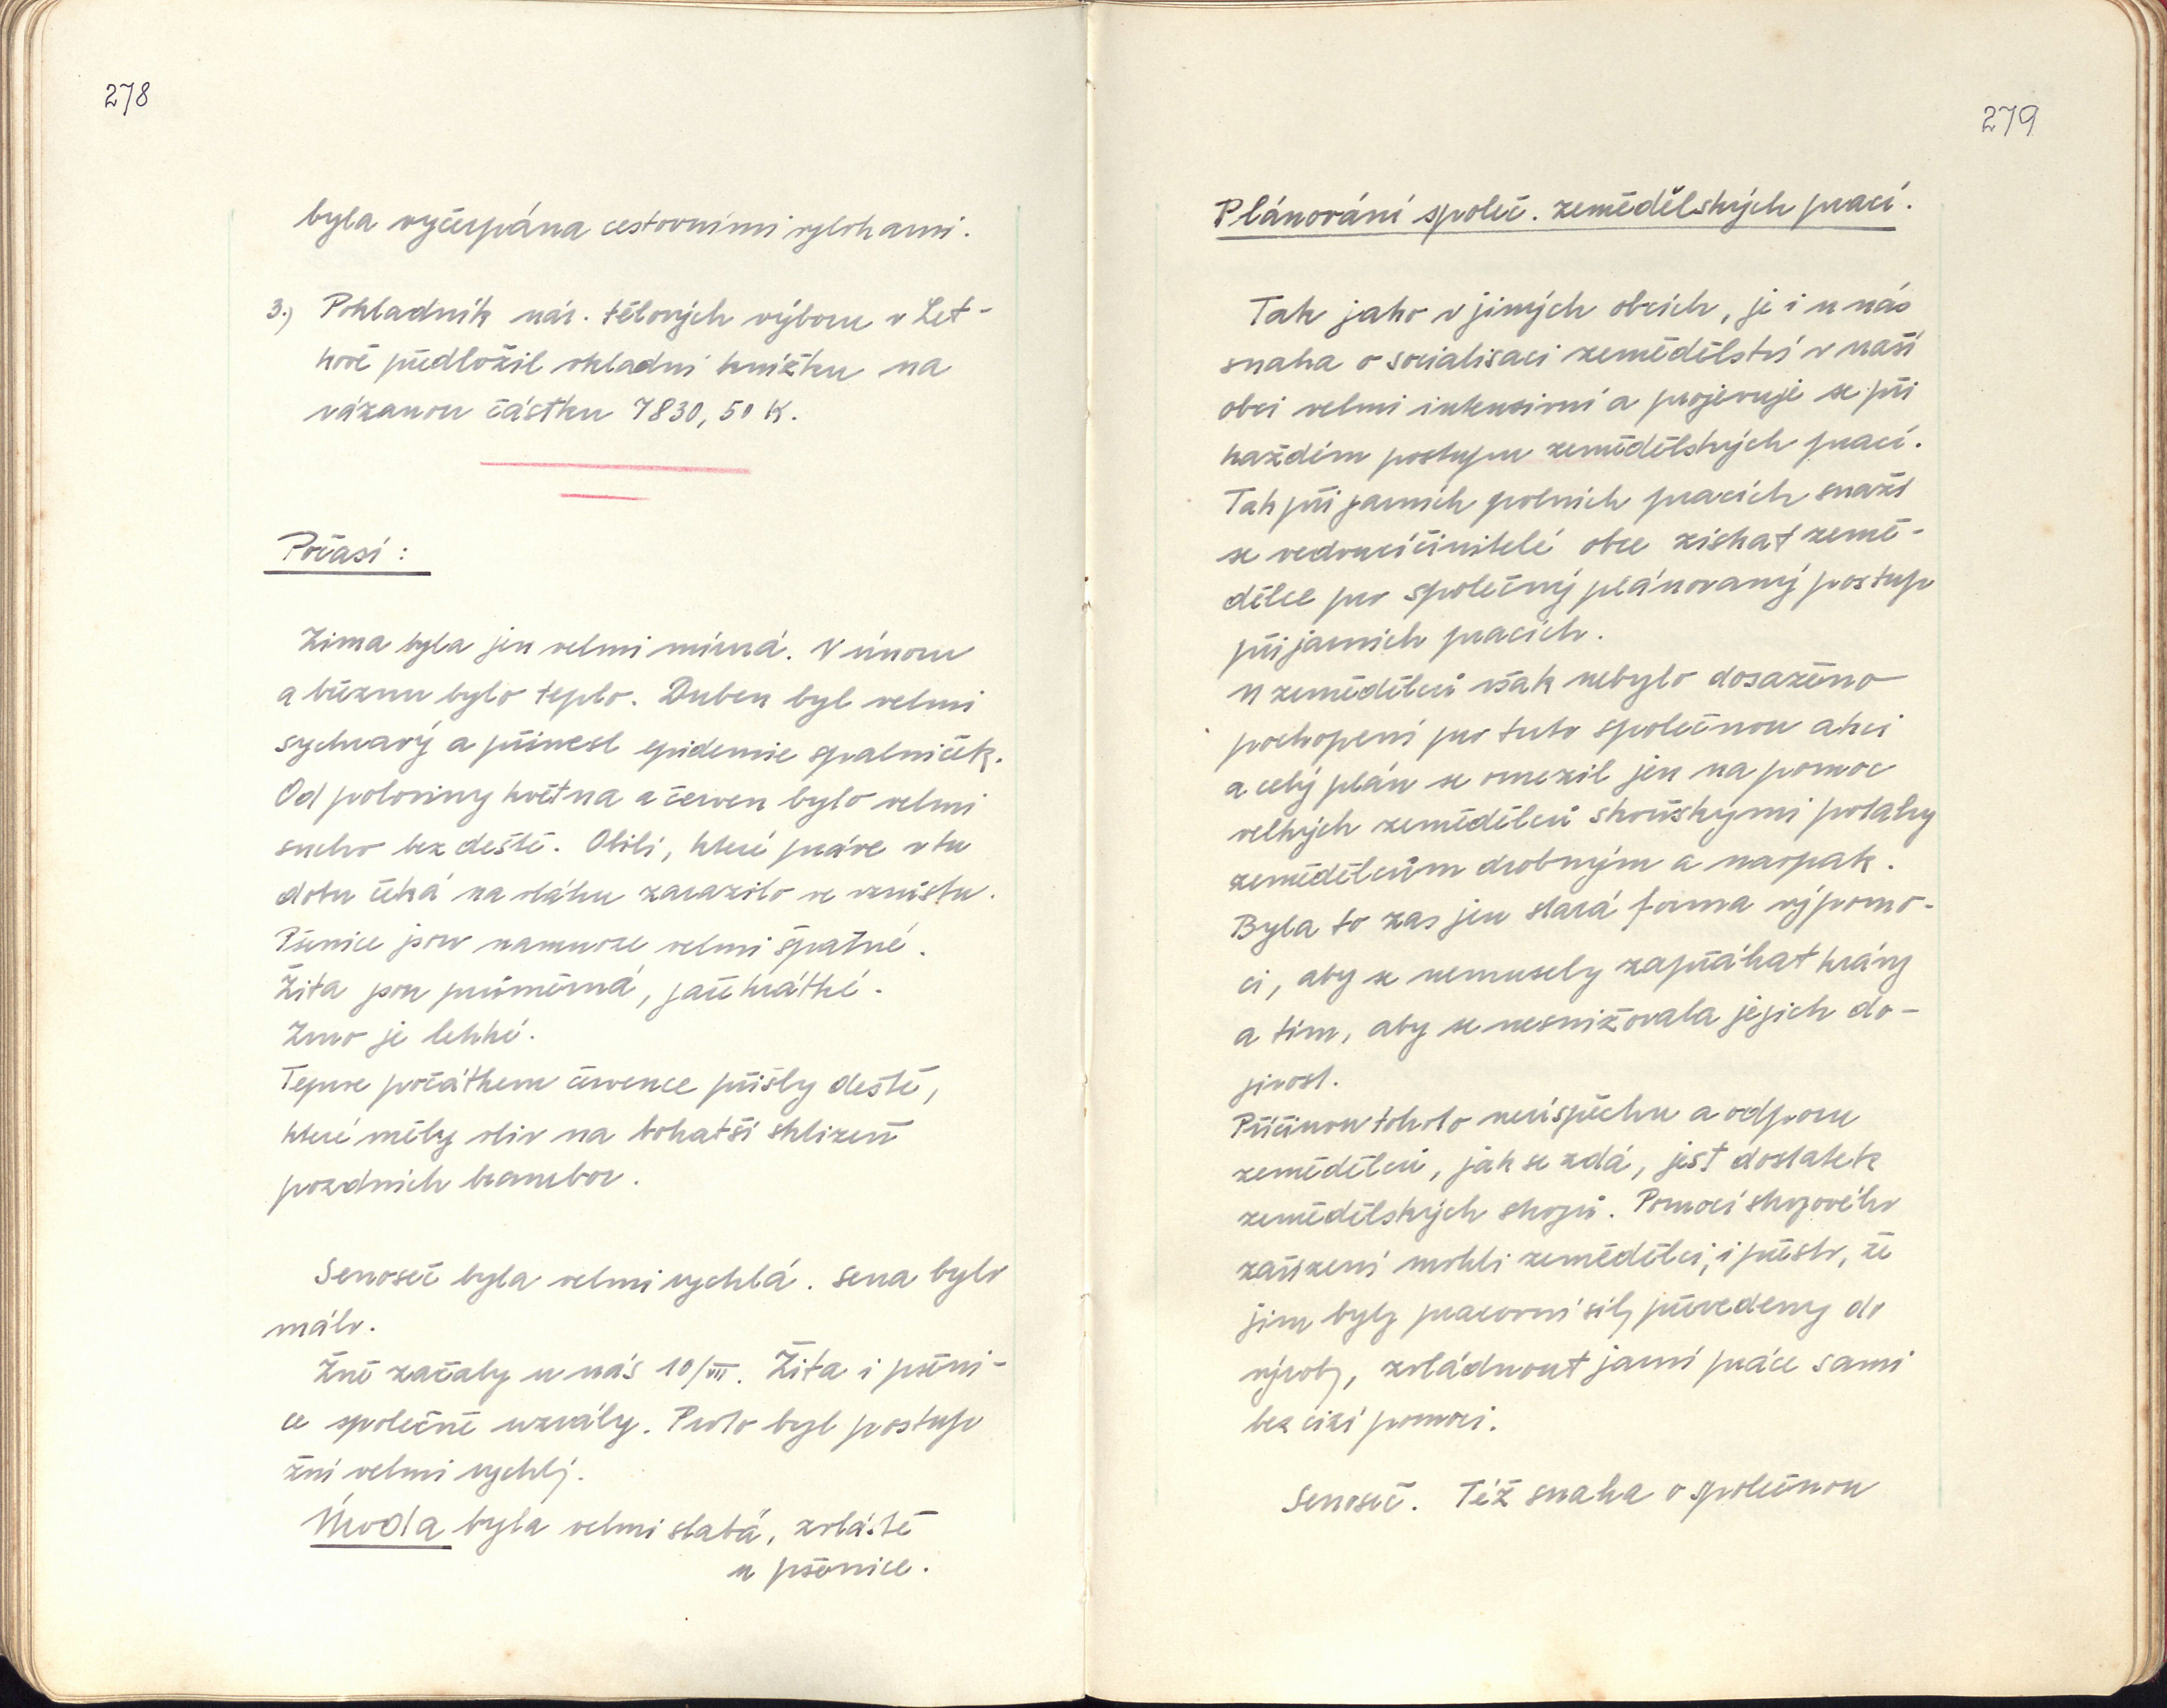 278
byla vyčerpána cestovními výlohami.
3.) Pokladník nár. tělových výboru v Let-
kově předložil vkladní knížku na
vázanou částku 7830,50 K.
Počasí:
Zima byla jen velmi mírná. V únoru
a březnu bylo teplo. Duben byl velmi
sychravý a přinesl epidemie spalniček.
Od poloviny května a červen bylo velmi
sucho bez deště. Obilí, které práve v tu
dobu čeká na vláhu zarazilo ve vzrůstu.
Pšenice jsou namnoze velmi špatné.
Žita jsou průměrná, jaře krátké.
Zrno je lehké.
Teprve počátkem července přišly deště,
které měly vliv na bohatší sklizeň
pozdních brambor.
Senoseč byla velmi rychlá. Sena bylo
málo.
Žně začaly u nás 10/VII. Žita i pšeni-
ce společně uzrály. Proto byl postup
žní velmi rychlý.
Úroda byla velmi slabá, zvláště
u pšenice.
279
Plánování společ. zemědělských prací.
Tak jako v jiných obcích, je i u nás
snaha o socialisaci zemědělství v naší
obci velmi intensivní a projevuje se při
každém postupu zemědělských prací.
Tak při jarních polních pracích snaží
se vedoucí činitelé obce získat země-
dělce pro společný plánovaný postup
při jarních pracích.
U zemědělců však nebylo dosaženo
pochopení pro tuto společnou akci
a celý plán se omezil jen na pomoc
velkých zemědělců s koňskými potahy
zemědělcům drobným a naopak.
Byla to zas jen stará forma výpomo-
ci, aby se nemusely zapřáhat krávy
a tím, aby se nesnižovala jejich do-
jivost.
Příčinou tohoto neúspěchu a odporu
zemědělců, jak se zdá, jest dostatek
zemědělských strojů. Pomocí strojového
zařízení mohli zemědělci, i přesto, že
jim byly pracovní síly převedeny do
výroby, zvládnout jarní práce sami
bez cizí pomoci.
Senoseč. Též snaha o společnou